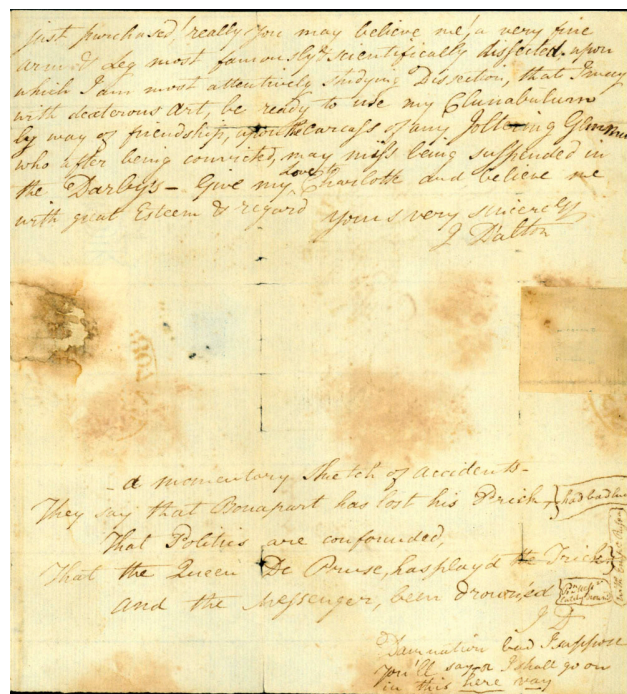 just purchased, really you may believe me, a very fine
arm & Leg most famously & scientifically dissected, upon
which I am most attentively studying Disection, that I may
with dexterous Art, be ready to use my
by way of friendship, upon the carcass of any Joltering
who after being convicted, may miss being suspended in
the Darbys - Give my Love to Charlotte and believe me
with great Esteem & regard yours very sincerely
J Dalton
- a momentary Sketch of accidents -
They say that Bonapart has lost his Prick, had bad luck
That Politics are confounded,
That the Queen De Pruse, has play'd the Trick
And the Messenger, been drown'ed
J D
Damnation bad I suppose
You'll say & I shall go on
in this here way